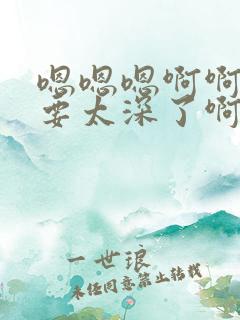 嗯嗯嗯啊啊
要太深了啊
一世琅
未经同意禁止转载